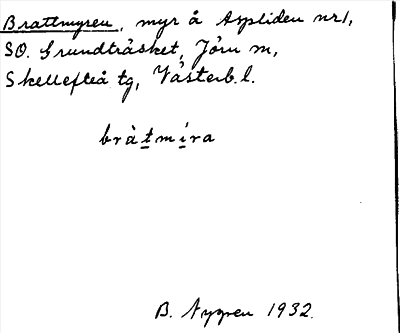 Brattmyren, myr å Aspliden nr1,
SO. Grundträsket, Jörn m,
Skellefteå tg, Västerb.l.
bràtmíra
B. Nygren 1932.